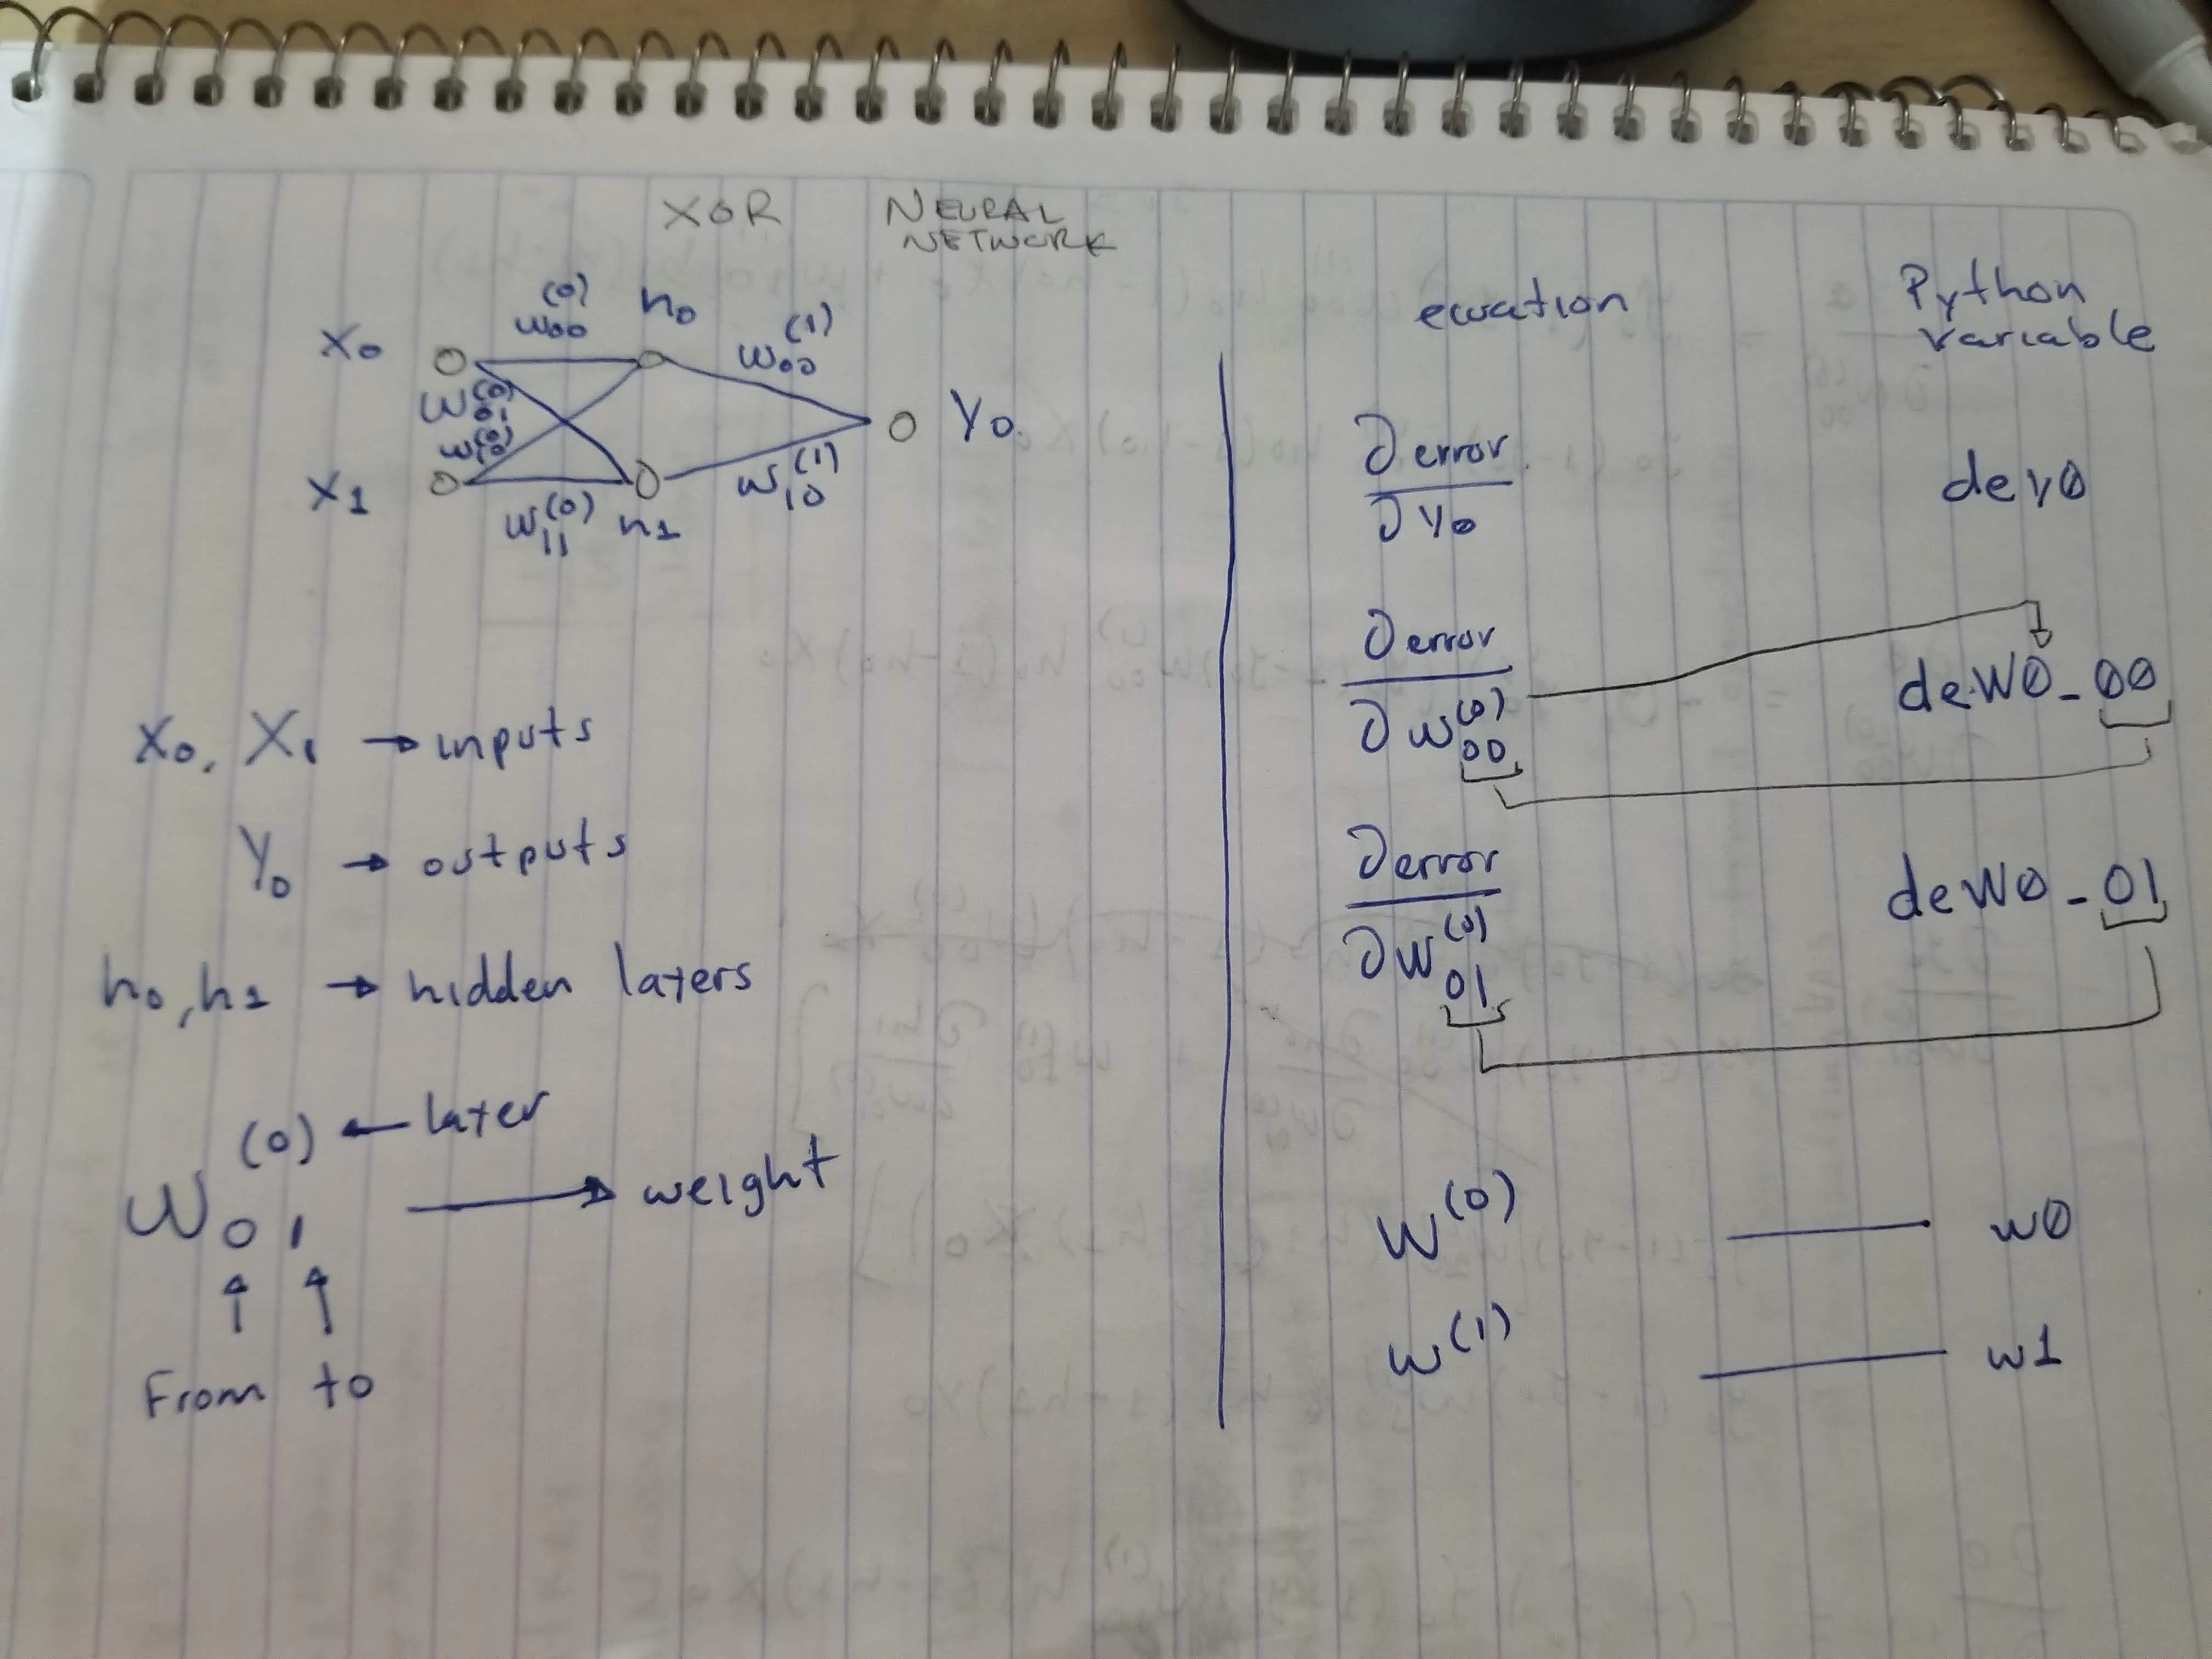 XOR NEURAL
NETWORK
X₀
w₀₀⁽⁰⁾
h₀
w₀₀⁽¹⁾
w₀₁⁽⁰⁾
w₁₀⁽⁰⁾
Y₀
X1
w₁₁⁽⁰⁾
h1
w₁₀⁽¹⁾
X₀, X₁ → inputs
Y₀ → outputs
h₀, h1 → hidden laters
(0) ← later
W₀₁ → weight
↑ ↑
From to
ewation
Python
variable
∂error
∂Y₀
dey0
∂error
∂w₀₀⁽⁰⁾
deW0_00
∂error
∂W₀₁⁽⁰⁾
deW0_01
W⁽⁰⁾ — w0
w⁽¹⁾ — w1